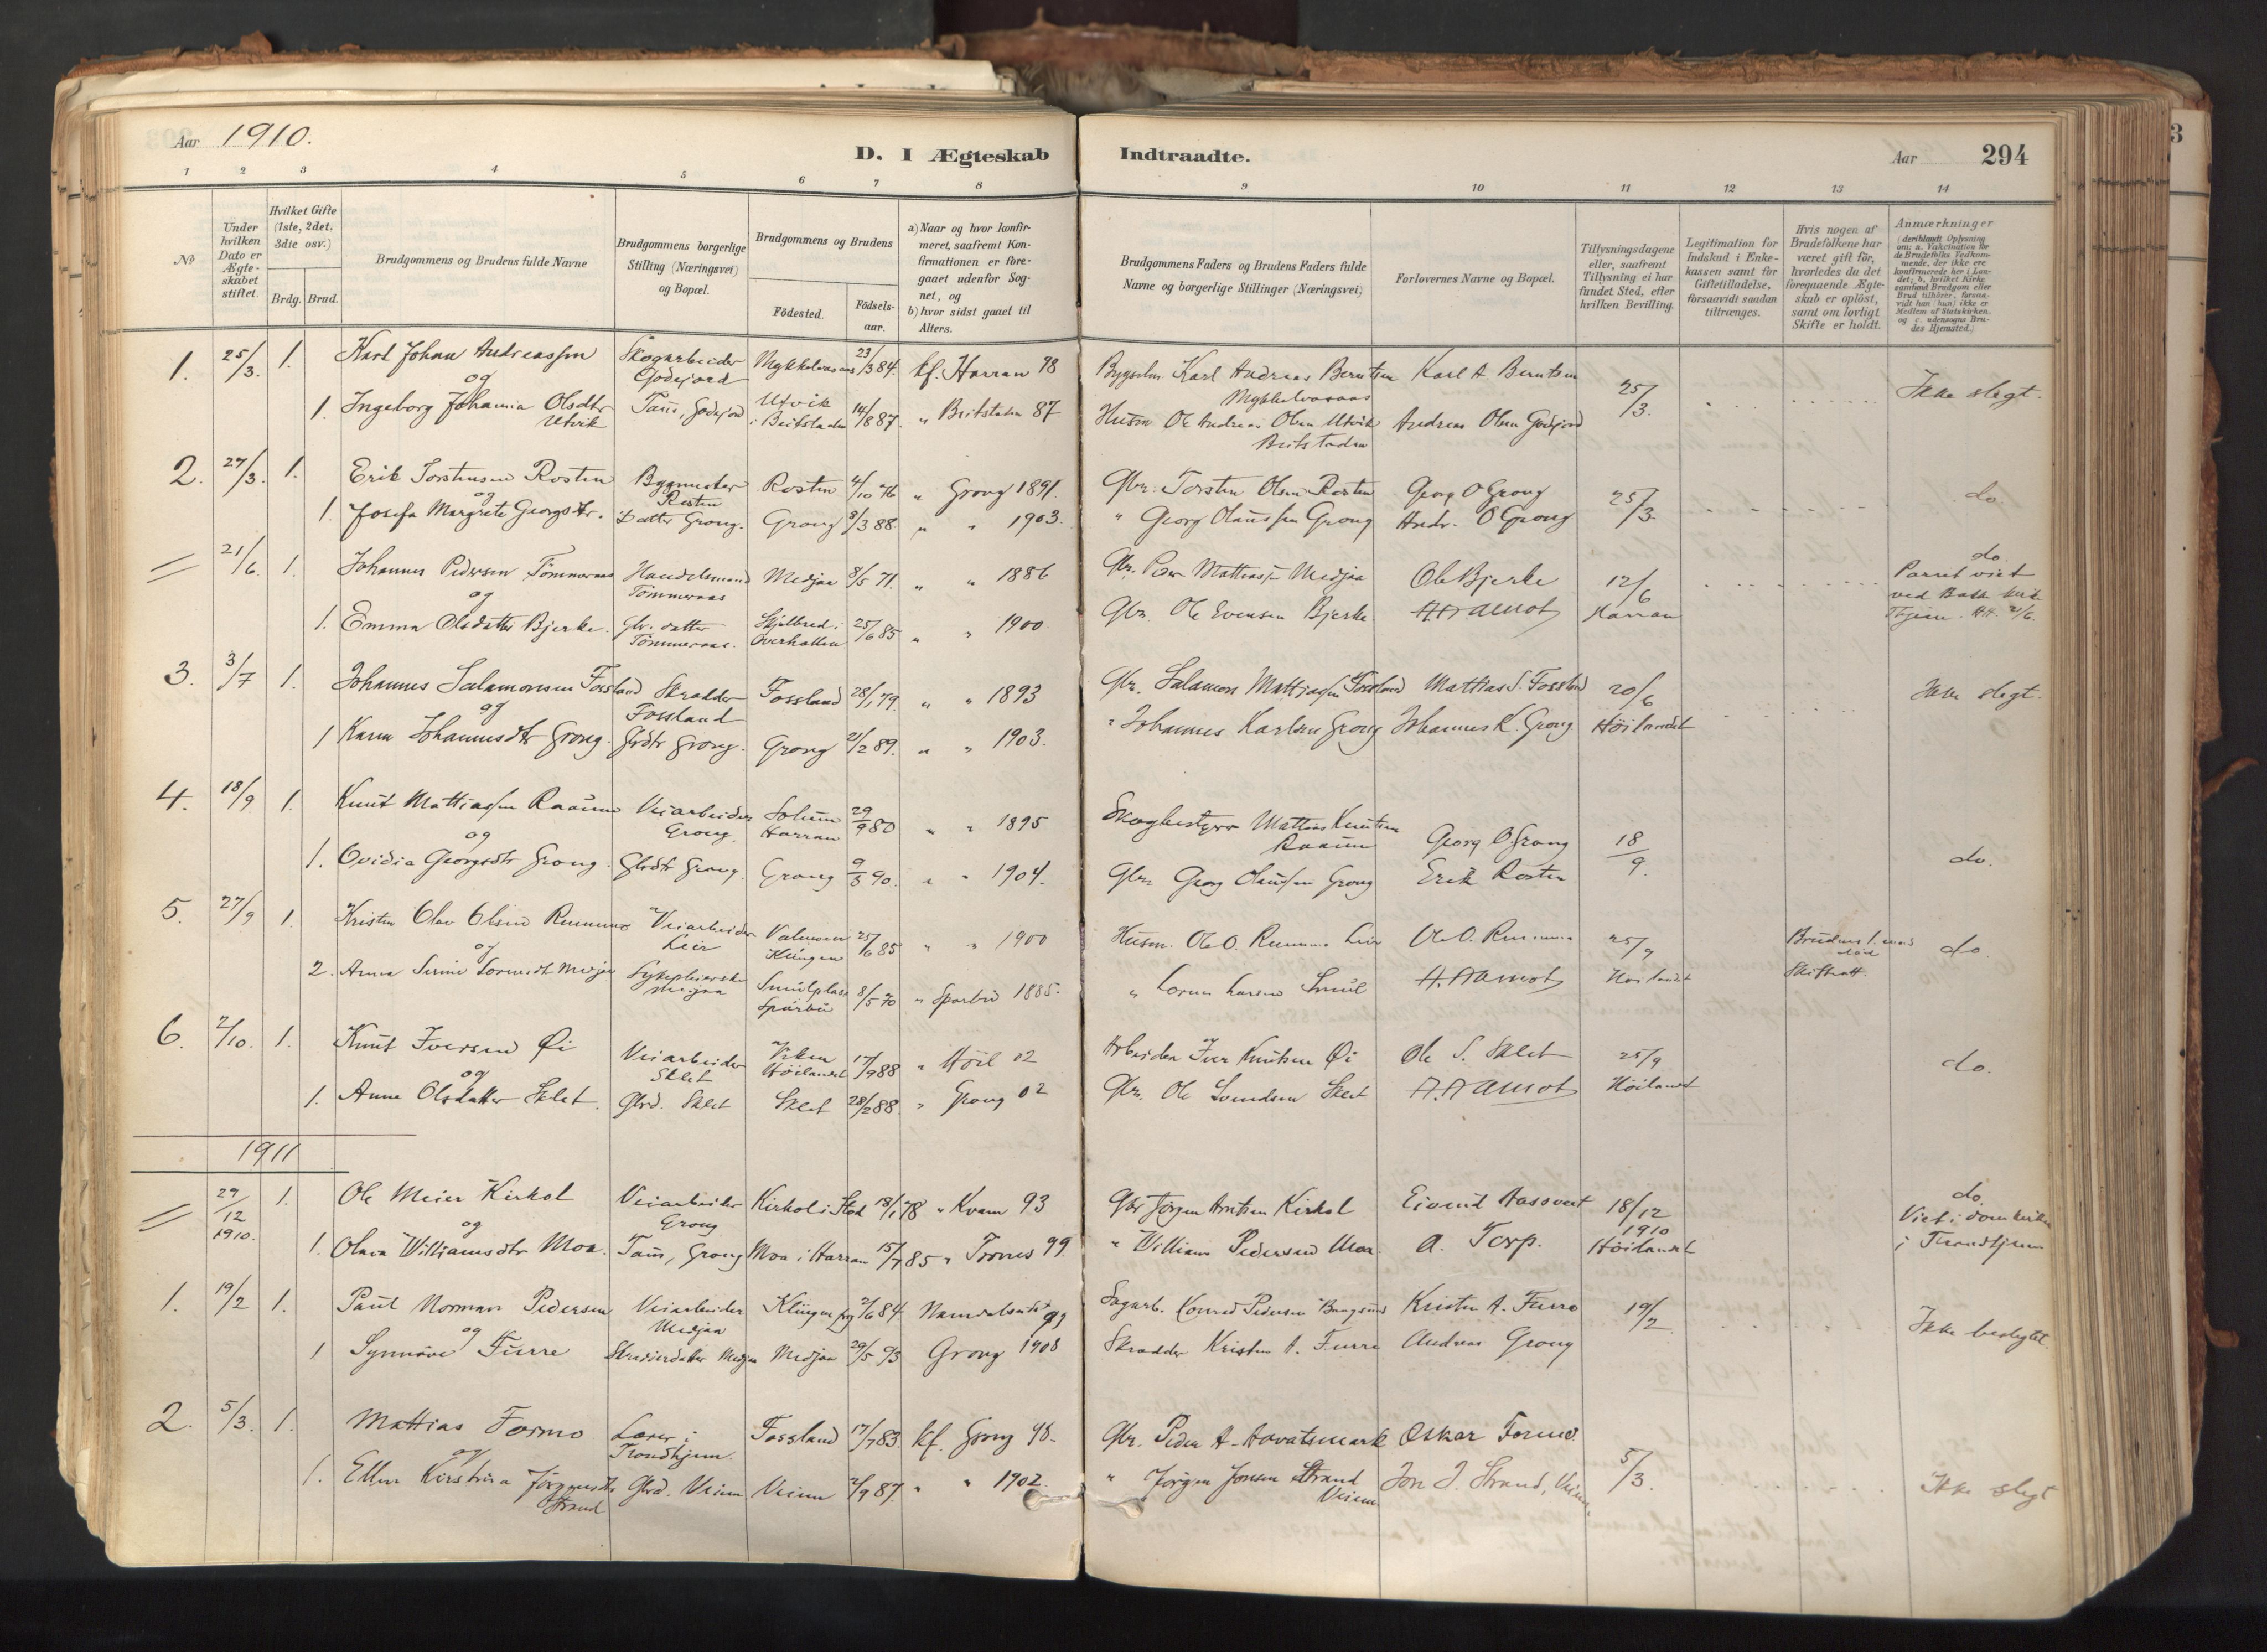 Aar 1910.
D. I Ægteskab Indtraadte.
Aar 294
1 2 3 4 5 6 7 8 9 10 11 12 13 14
No
Under hvilken Dato er Ægteskabet stiftet.
Hvilket Gifte (1ste, 2det, 3die osv.)
Brdg. Brud.
Brudgommens og Brudens fulde Navne
Brudgommens borgerlige Stilling (Næringsvei) og Bopæl.
Brudgommens og Brudens
Fødested. Fødselsaar.
a) Naar og hvor konfirmeret, saafremt Konfirmationen er foregaaet udenfor Sognet, og
b) hvor sidst gaaet til Alters.
Brudgommens Faders og Brudens Faders fulde Navne og borgerlige Stillinger (Næringsvei)
Forlovernes Navne og Bopæl.
Tillysningsdagene eller, saafremt Tillysning ei har fundet Sted, efter hvilken Bevilling.
Legitimation for Indskud i Enkekassen samt for Giftetilladelse, forsaavidt saadan tiltrænges.
Hvis nogen af Brudefolkene har været gift før, hvorledes da det foregaaende Ægteskab er opløst, samt om lovligt Skifte er holdt.
Anmærkninger (deriblandt Oplysning om: a. Vakcination for de Brudefolks Vedkommende, der ikke ere konfirmerede her i Landet; b. hvilket Kirkesamfund Brudgom eller Brud tilhører, forsaavidt han (hun) ikke er Medlem af Statskirken, og c. udensogns Brudes Hjemsted.)
1. 25/3. 1. Karl Johan Andreassen Skogarbeider Godejord 23/3 84. kf. Harran 98 Karl Andreas Berntsen Karl A Berntsen 25/3. Ikke slegt.
og
1. Ingeborg Johanna Olsdtr Utvik Godejord Utvik i Beitstaden 14/8 87. " Beitstaden 87 Husm Ole Andreas Olsen Utvik Beitstaden Andreas Olsen Godejord
2. 27/3. 1. Erik Torstensen Rosten Bygmester Rosten Rosten 4/10 76 " Grong 1891. Gbr. Torsten Olsen Rosten Georg O Grong 25/3. do.
og
1. Josefa Margrete Georgsdtr. Datter Grong. Grong 3/3 88. " " 1903. " Georg Olaussen Grong Andr. O Grong
21/6. 1. Johannes Pedersen Tømmeraas Handelsmand Tømmeraas Medjaa 8/5 71. " " 1886 Gbr. Peder Mattiassen Medjaa Ole Bjerke 12/6 Harran do. Parret viet
og
1. Emma Olsdatter Bjerke. Gbr. datter Tømmeraas. Overhallen 25/6 85 " " 1900 Gbr. Ole Evensen Bjerke
3. 3/7 1. Johannes Salamonsen Fossland Skrædder Fossland Fossland 28/1 79. " " 1893 Gbr. Salamon Mattiassen Fossland Mattias S. Fossland 20/6 Høilandet Ikke slegt.
og
1 Karen Johannesdtr Grong. Gbrdtr Grong. Grong 21/2 89. " " 1903. " Johannes Karlsen Grong Johannes K. Grong
4. 18/9 1. Knut Mattiassen Raaum Veiarbeider Grong. Solum Harran 29/9 80 " " 1895 Skogbestyrer Mattias Knutsen Raaum Georg O Grong 18/9. do.
og
1. Ovidia Georgsdtr Grong. Gbrdtr Grong. Grong 9/3 90. " " 1904. Gbr. Georg Olaussen Grong Erik Rosten
5. 27/9 1. Kristen Olav Olsen Veiarbeider Leir Klingen 25/6 85 " " 1900 Husm. Ole O. Leir Ole O. 25/9 Høilandet do.
og
2. Anna Medjaa Sparbu 8/5 70 " Sparbu 1885. Skiftratt.
6. 2/10. 1. Knut Iversen Øi Veiarbeider Sklet Høilandet 17/9 88 " Høil 02 Arbeider Iver Knutsen Øi Ole S. Sklet 25/9 Høilandet do.
og
1. Anne Olsdatter Sklet. Gbrd. Sklet Sklet 28/2 88. " Grong 02 Gbr. Ole Svendsen Sklet
1911
29/12 1910. 1. Ole Meier Kirkol Veiarbeider Grong Kirkol i Stod 18/1 78 " Kvam 93 Gbr Jørgen Arntsen Kirkol 18/12 1910 Høilandet do. Viet i domkirken i Trondhjem
og
1. Olava Williamsdtr Moa. Grong Moa i Harran 15/7 85 " Trones 99. " William Pedersen Moa. A. Torp.
1. 19/2 1. Paul Norman Pedersen Veiarbeider Medjaa Klingen 2/6 84. 99 Konrad Pedersen Kristen A. Furre 19/2 Ikke beslegtet.
og
1 Synnøve Furre Skrædderdatter Medjaa Medjaa 29/5 93 Grong 1908 Skrædder Kristen A. Furre Andreas Grong
2. 5/3. 1. Mattias Formo Lærer i Trondhjem. Fossland 17/7 83. kf. Grong 98. Gbr. Peder A. Havatsmark Oskar Formo. 5/3. Ikke slegt
og
1. Ellen Kirstina Jørgensdtr Strand Gbrd. Veium Veium 2/9 87. " " 1902. " Jørgen Jonsen Strand Veium Jon J. Strand, Veium.